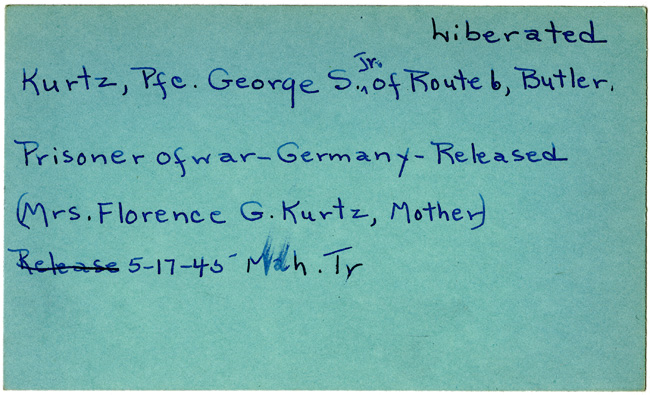 Liberated
Kurtz, Pfc. George S. Jr., of Route 6, Butler.
Prisoner of war - Germany - Released
(Mrs. Florence G. Kurtz, Mother)
Release 5-17-45 Tr